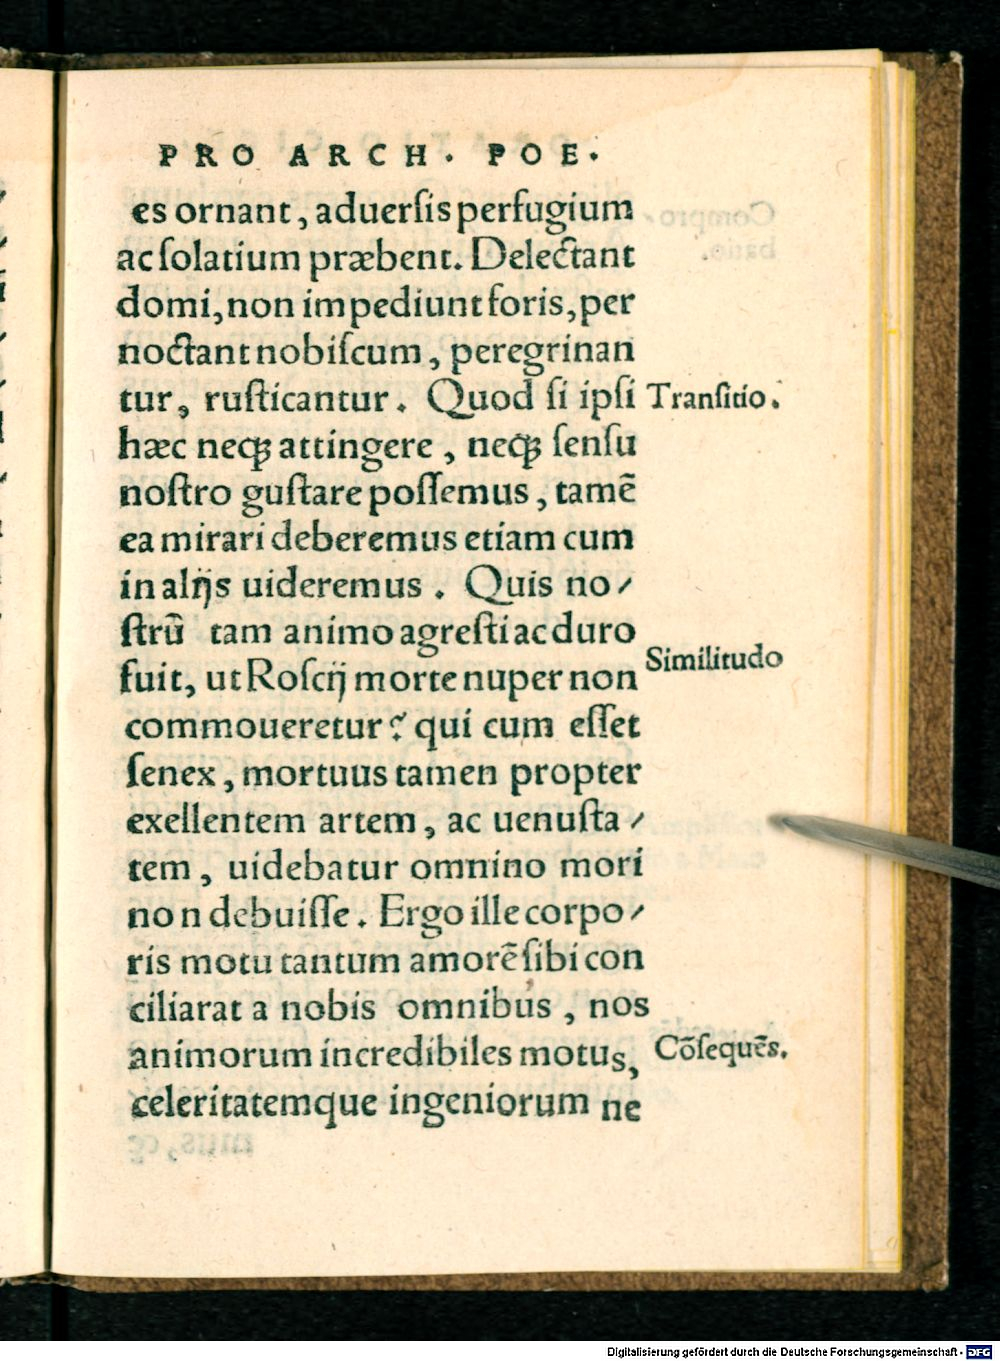 PRO ARCH. POE.
es ornant, aduerſis perfugium
ac ſolatium præbent. Delectant
domi, non impediunt foris, per
noctant nobiſcum, peregrinan
tur, ruſticantur. Quod ſi ipſi
Tranſitio.
hæc neqꝫ attingere, neqꝫ ſenſu
noſtro guſtare poſſemus, tamē
ea mirari deberemus etiam cum
in alijs uideremus. Quis no/
ſtrū tam animo agreſti ac duro
Similitudo
fuit, ut Roſcij morte nuper non
commoueretur? qui cum eſſet
ſenex, mortuus tamen propter
exellentem artem, ac uenuſta/
tem, uidebatur omnino mori
non debuiſſe. Ergo ille corpo/
ris motu tantum amorē ſibi con
ciliarat a nobis omnibus, nos
animorum incredibiles motus,
Cōſequēs.
celeritatemque ingeniorum ne
Digitalisierung gefördert durch die Deutsche Forschungsgemeinschaft - DFG